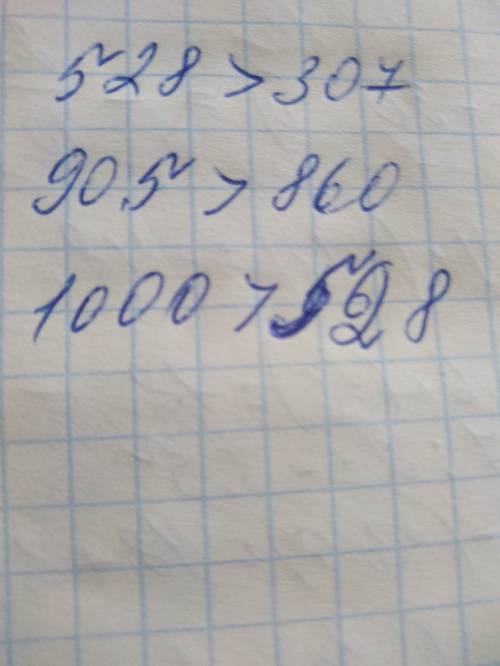 528 > 307
905 > 860
1000 > 528